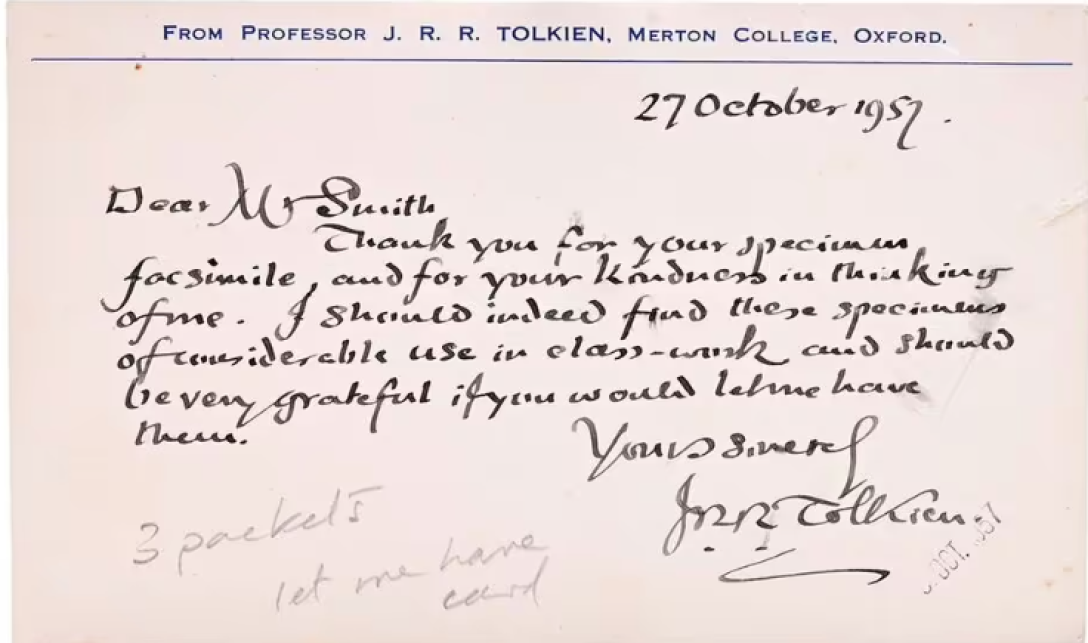 FROM PROFESSOR J. R. R. TOLKIEN, MERTON COLLEGE, OXFORD.
27 October 1957.
Dear Mr Smith
Thank you for your specimen
facsimile, and for your kindness in thinking
of me. I should indeed find these specimens
of considerable use in class-work and should
be very grateful if you would let me have
them.
Yours sincerely
JRR Tolkien
OCT. 1957
3 packets
let me have
card